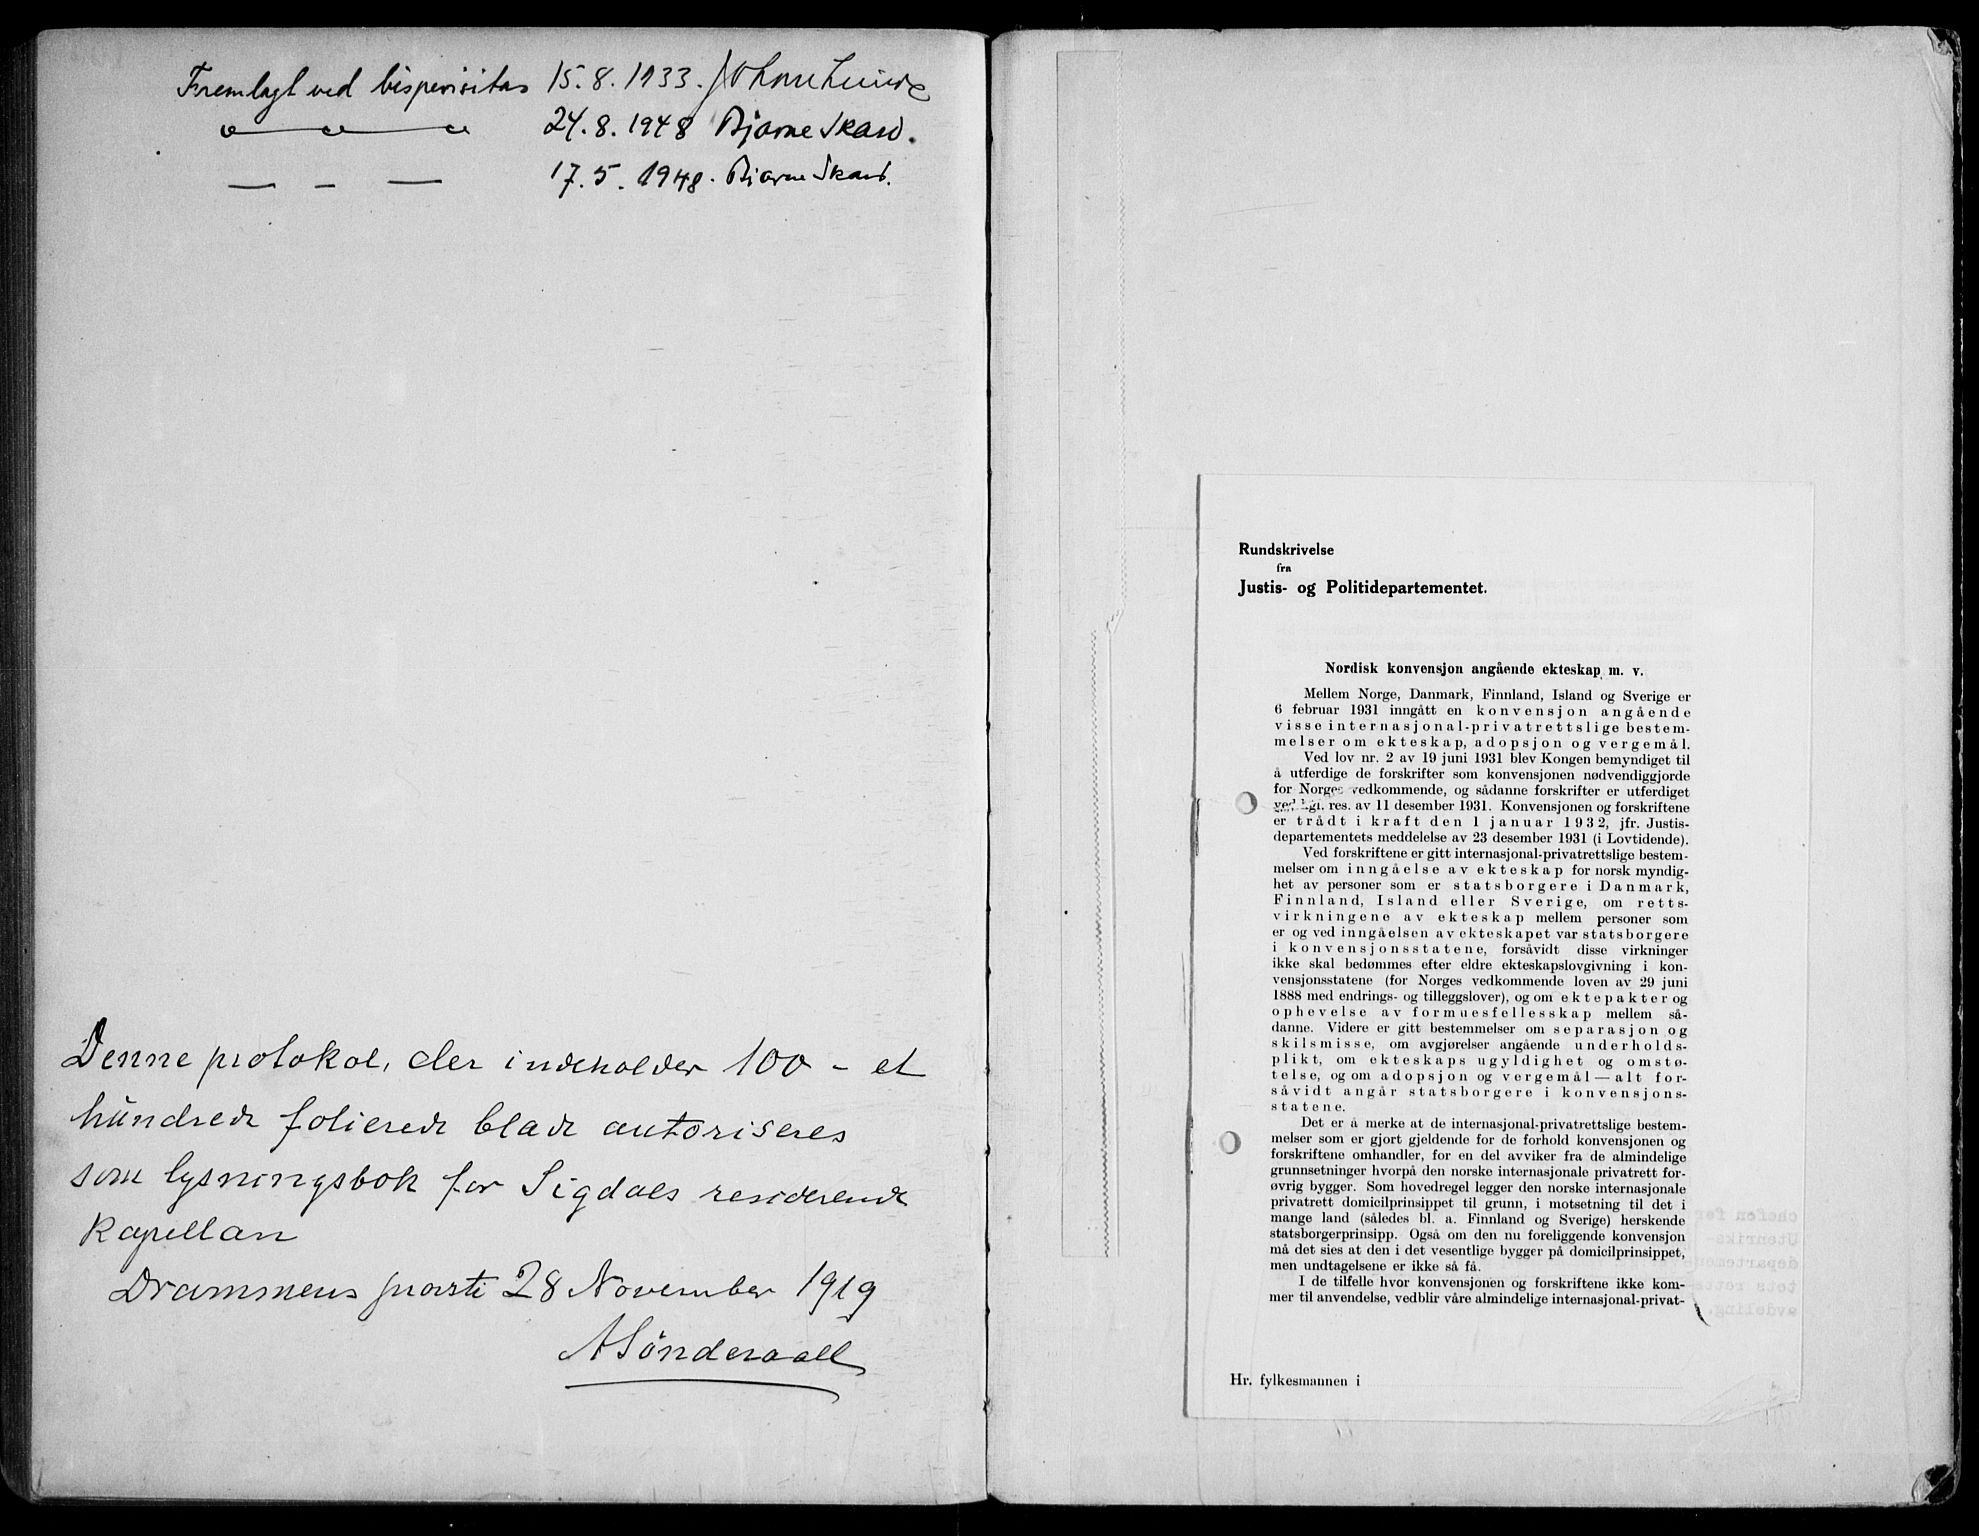 Fremlagt ved bispevisitas 15.8.1933. Johan Lunde
" " " 24.8.1948 Bjarne Skard.
— – — 17.5.1948. Bjarne Skard.
Denne protokol, der indeholder 100 – et
hundrede folierede blade autoriseres
som lysningsbok for Sigdals residerende
kapellan
Drammens prosti 28 November 1919
A Sønderaall
Rundskrivelse
fra
Justis- og Politidepartementet.
Nordisk konvensjon angående ekteskap m. v.
Mellem Norge, Danmark, Finnland, Island og Sverige er
6 februar 1931 inngått en konvensjon angående
visse internasjonal-privatrettslige bestem-
melser om ekteskap, adopsjon og vergemål.
Ved lov nr. 2 av 19 juni 1931 blev Kongen bemyndiget til
å utferdige de forskrifter som konvensjonen nødvendiggjorde
for Norges vedkommende, og sådanne forskrifter er utferdiget
ved kgl. res. av 11 desember 1931. Konvensjonen og forskriftene
er trådt i kraft den 1 januar 1932, jfr. Justis-
departementets meddelelse av 23 desember 1931 (i Lovtidende).
Ved forskriftene er gitt internasjonal-privatrettslige bestem-
melser om inngåelse av ekteskap for norsk myndig-
het av personer som er statsborgere i Danmark,
Finnland, Island eller Sverige, om retts-
virkningene av ekteskap mellem personer som
er og ved inngåelsen av ekteskapet var statsborgere
i konvensjonsstatene, forsåvidt disse virkninger
ikke skal bedømmes efter eldre ekteskapslovgivning i kon-
vensjonsstatene (for Norges vedkommende loven av 29 juni
1888 med endrings- og tilleggslover), og om ektepakter og
ophevelse av formuesfellesskap mellem så-
danne. Videre er gitt bestemmelser om separasjon og
skilsmisse, om avgjørelser angående underholds-
plikt, om ekteskaps ugyldighet og omstø-
telse, og om adopsjon og vergemål — alt for-
såvidt angår statsborgere i konvensjons-
statene.
Det er å merke at de internasjonal-privatrettslige bestem-
melser som er gjort gjeldende for de forhold konvensjonen og
forskriftene omhandler, for en del avviker fra de almindelige
grunnsetninger hvorpå den norske internasjonale privatrett for-
øvrig bygger. Som hovedregel legger den norske internasjonale
privatrett domicilprinsippet til grunn, i motsetning til det i
mange land (således bl. a. Finnland og Sverige) herskende
statsborgerprinsipp. Også om den nu foreliggende konvensjon
må det sies at den i det vesentlige bygger på domicilprinsippet,
men undtagelsene er ikke så få.
I de tilfelle hvor konvensjonen og forskriftene ikke kom-
mer til anvendelse, vedblir våre almindelige internasjonal-privat-
Hr. fylkesmannen i